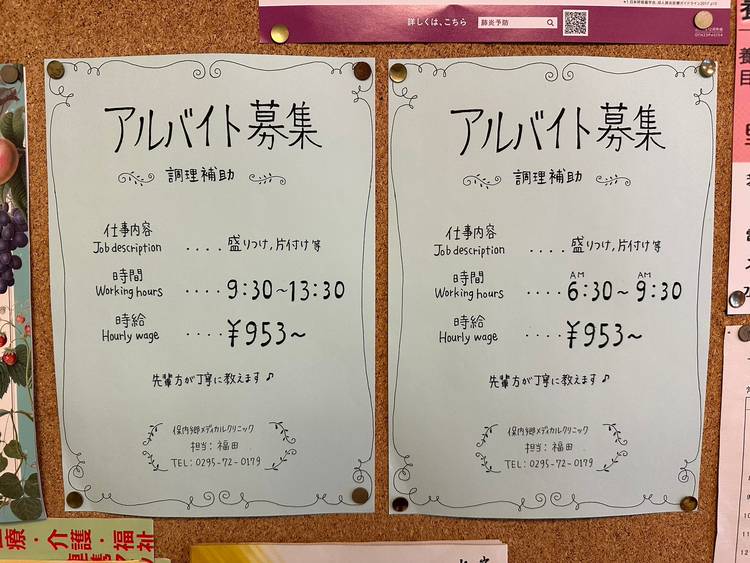 詳しくは、こちら 肺炎予防
アルバイト募集
調理補助
仕事内容
Job description ････ 盛りつけ, 片付け等
時間
Working hours ････ 9:30~13:30
時給
Hourly wage ････ ¥953~
先輩方が丁寧に教えます♪
保内郷メディカルクリニック
担当: 福田
TEL: 0295-72-0179
アルバイト募集
調理補助
仕事内容
Job description ････ 盛りつけ, 片付け等
時間 AM AM
Working hours ････ 6:30~9:30
時給
Hourly wage ････ ¥953~
先輩方が丁寧に教えます♪
保内郷メディカルクリニック
担当: 福田
TEL: 0295-72-0179
療・介護・福祉